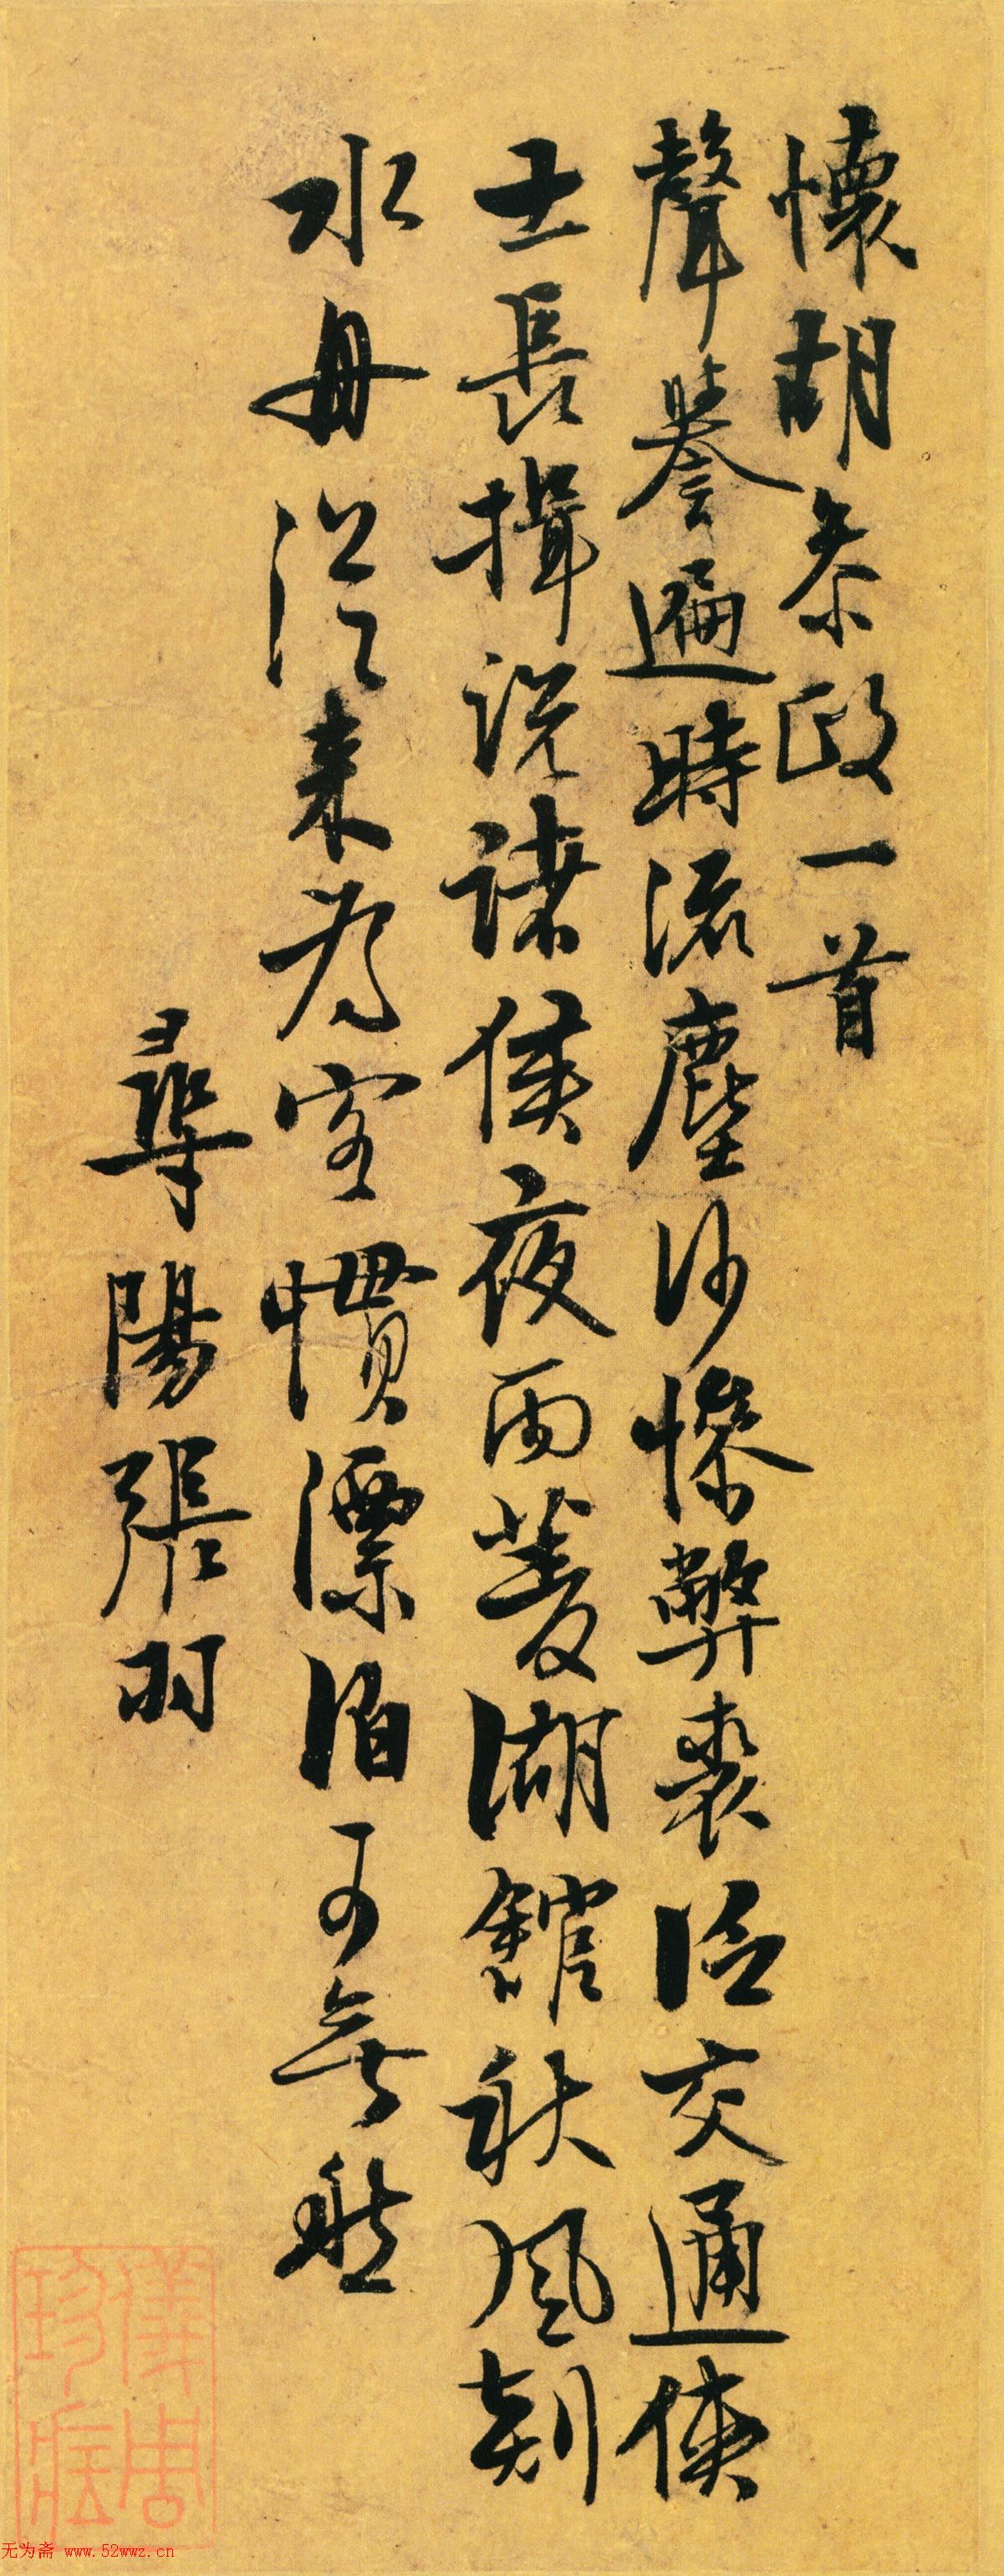 懷胡参政一首
聲譽遍時流塵沙慘弊裘結交通俠
士長揖說諸侯夜雨菱湖館秋風剡
水舟從来為客慣漂泊可無愁
尋陽張羽
儀周珍藏
无为斋 www.52wwz.cn